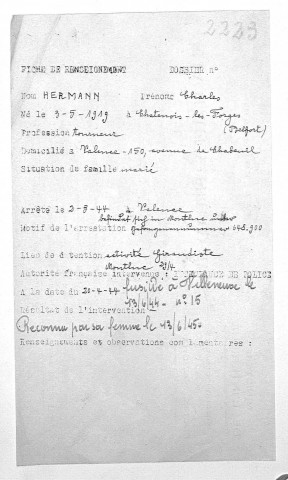 2223
FICHE DE RENSEIGNEMENT DOSSIER n°
Nom HERMANN Prénoms Charles
Né le 3-5-1919 à Chatenois-les-Forges
(Belfort)
Profession Tourneur
Domicilié à Valence - 150, avenue de Chabeuil
Situation de famille marié
Arrêté le 2-3-44 à Valence
Motif de l'arrestation Gefangenennummer
Lieu de détention activité Girondiste
Montluc
Autorité française intervenue : INTENDANCE DE POLICE
A la date du 20-4-44 fusillé à Villeneuve le
13/6/44 - n° 15
Résultat de l'intervention
Reconnu par sa femme le 13/6/45.
Renseignements et observations complémentaires :